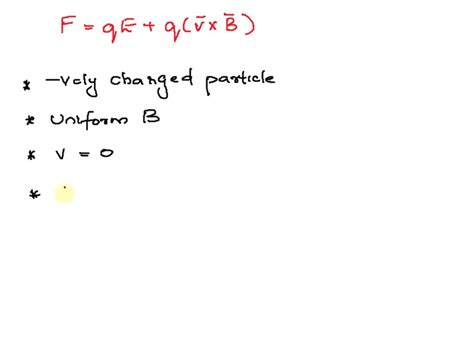 F = qE + q(v̄ × B̄)
* -vely charged particle
* Uniform B
* v = 0
*